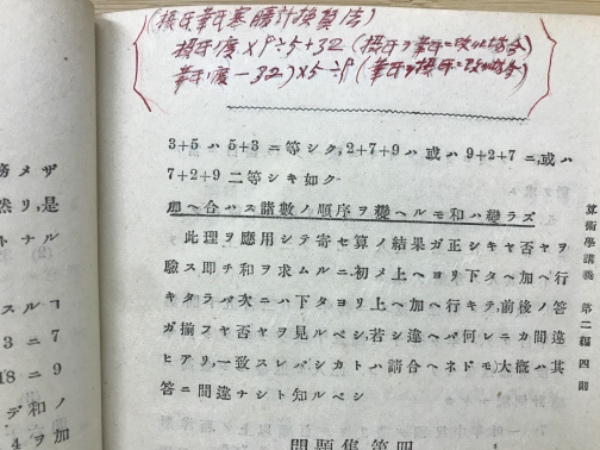 (摂氏華氏寒暖計換算法)
摂氏度×9÷5+32(摂氏ヲ華氏ニ改ムル場合)
華氏度-32)×5÷9(華氏ヲ摂氏ニ改ムル場合)
3+5 ハ 5+3 ニ等シク,2+7+9 ハ或ハ 9+2+7 ニ,或ハ
7+2+9 ニ等シキ如ク
加ヘ合ハス諸數ノ順序ヲ變ヘルモ和ハ變ラズ
此理ヲ應用シテ寄セ算ノ結果ガ正シキヤ否ヤヲ
驗ス卽チ和ヲ求ムルニ初メ上ヘヨリ下タヘ加ヘ行
キタラバ次ニハ下タヨリ上ヘ加ヘ行キテ,前後ノ答
ガ揃フヤ否ヤヲ見ルベシ,若シ違ヘバ何レニカ間違
ヒアリ,一致スレバシカトハ請合ヘネドモ,大概ハ其
答ニ間違ナシト知ルベシ
問題集第四
算術學講義 第二編 四則
務メザ
然リ,是
トナル
スルヿ
3 ニ 7
18 ニ 9
デ和ノ
4 ヲ加